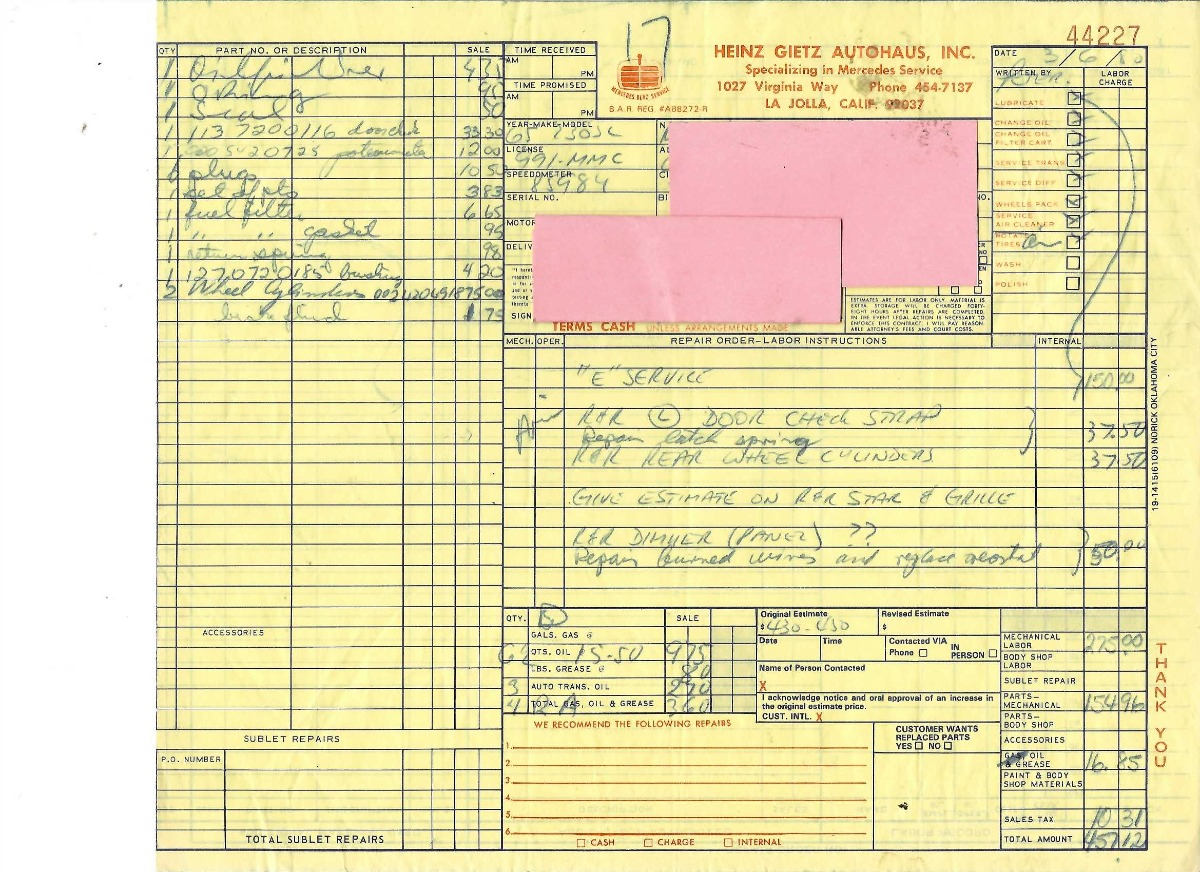 17
44227
HEINZ GIETZ AUTOHAUS, INC.
Specializing in Mercedes Service
1027 Virginia Way Phone 454-7137
LA JOLLA, CALIF. 92037
MERCEDES BENZ SERVICE
B.A.R. REG. #A88272-R
TIME RECEIVED
AM
PM
TIME PROMISED
AM
PM
DATE 3/6/80
WRITTEN BY
LABOR CHARGE
LUBRICATE
CHANGE OIL
CHANGE OIL FILTER CART.
SERVICE TRANS
SERVICE DIFF
WHEELS PACK
SERVICE AIR CLEANER
ROTATE TIRES
WASH
POLISH
QTY PART NO. OR DESCRIPTION SALE
1 Oil filter
1 O Ring 95
1 Seal 50
1 113 7200116 33 30
1 12 00
6 plugs 10 50
1 set of pts 3 83
1 fuel filter 6 65
1 " " gasket 95
1 return spring 98
1 1270720185 bushing 4 20
2 Wheel Cylinders 75 00
brake fluid 1 75
YEAR-MAKE-MODEL
65 230SL
LICENSE
991-MMC
SPEEDOMETER
85984
SERIAL NO.
MOTOR
DELIV
SIGN
TERMS CASH UNLESS ARRANGEMENTS MADE
ESTIMATES ARE FOR LABOR ONLY, MATERIAL IS EXTRA. STORAGE WILL BE CHARGED FORTY-EIGHT HOURS AFTER REPAIRS ARE COMPLETED. IN THE EVENT LEGAL ACTION IS NECESSARY TO ENFORCE THIS CONTRACT, I WILL PAY REASONABLE ATTORNEY'S FEES AND COURT COSTS.
MECH. OPER. REPAIR ORDER-LABOR INSTRUCTIONS INTERNAL
"E" SERVICE 150.00
R&R (L) DOOR CHECK STRAP
Repair latch spring 37.50
R&R REAR WHEEL CYLINDERS 37.50
GIVE ESTIMATE ON R&R STAR & GRILLE
R&R DIMMER (PANEL) ??
Repair burned wires and replace reostat 50.00
19-1415(6109) NORICK OKLAHOMA CITY
ACCESSORIES
SUBLET REPAIRS
P.O. NUMBER
TOTAL SUBLET REPAIRS
QTY. SALE
GALS. GAS @
QTS. OIL 15-50 9 75
LBS. GREASE @ 80
3 AUTO TRANS. OIL 2 70
4 TOTAL GAS, OIL & GREASE 3 60
WE RECOMMEND THE FOLLOWING REPAIRS
1.
2.
3.
4.
5.
6.
CASH CHARGE INTERNAL
Original Estimate
$ 430-450
Revised Estimate
$
Date
Time
Contacted VIA
Phone IN PERSON
Name of Person Contacted
X
I acknowledge notice and oral approval of an increase in the original estimate price.
CUST. INTL. X
CUSTOMER WANTS REPLACED PARTS
YES NO
MECHANICAL LABOR 275.00
BODY SHOP LABOR
SUBLET REPAIR
PARTS-MECHANICAL 154 96
PARTS-BODY SHOP
ACCESSORIES
GAS, OIL & GREASE 16.85
PAINT & BODY SHOP MATERIALS
SALES TAX 10 31
TOTAL AMOUNT 457.12
THANK YOU